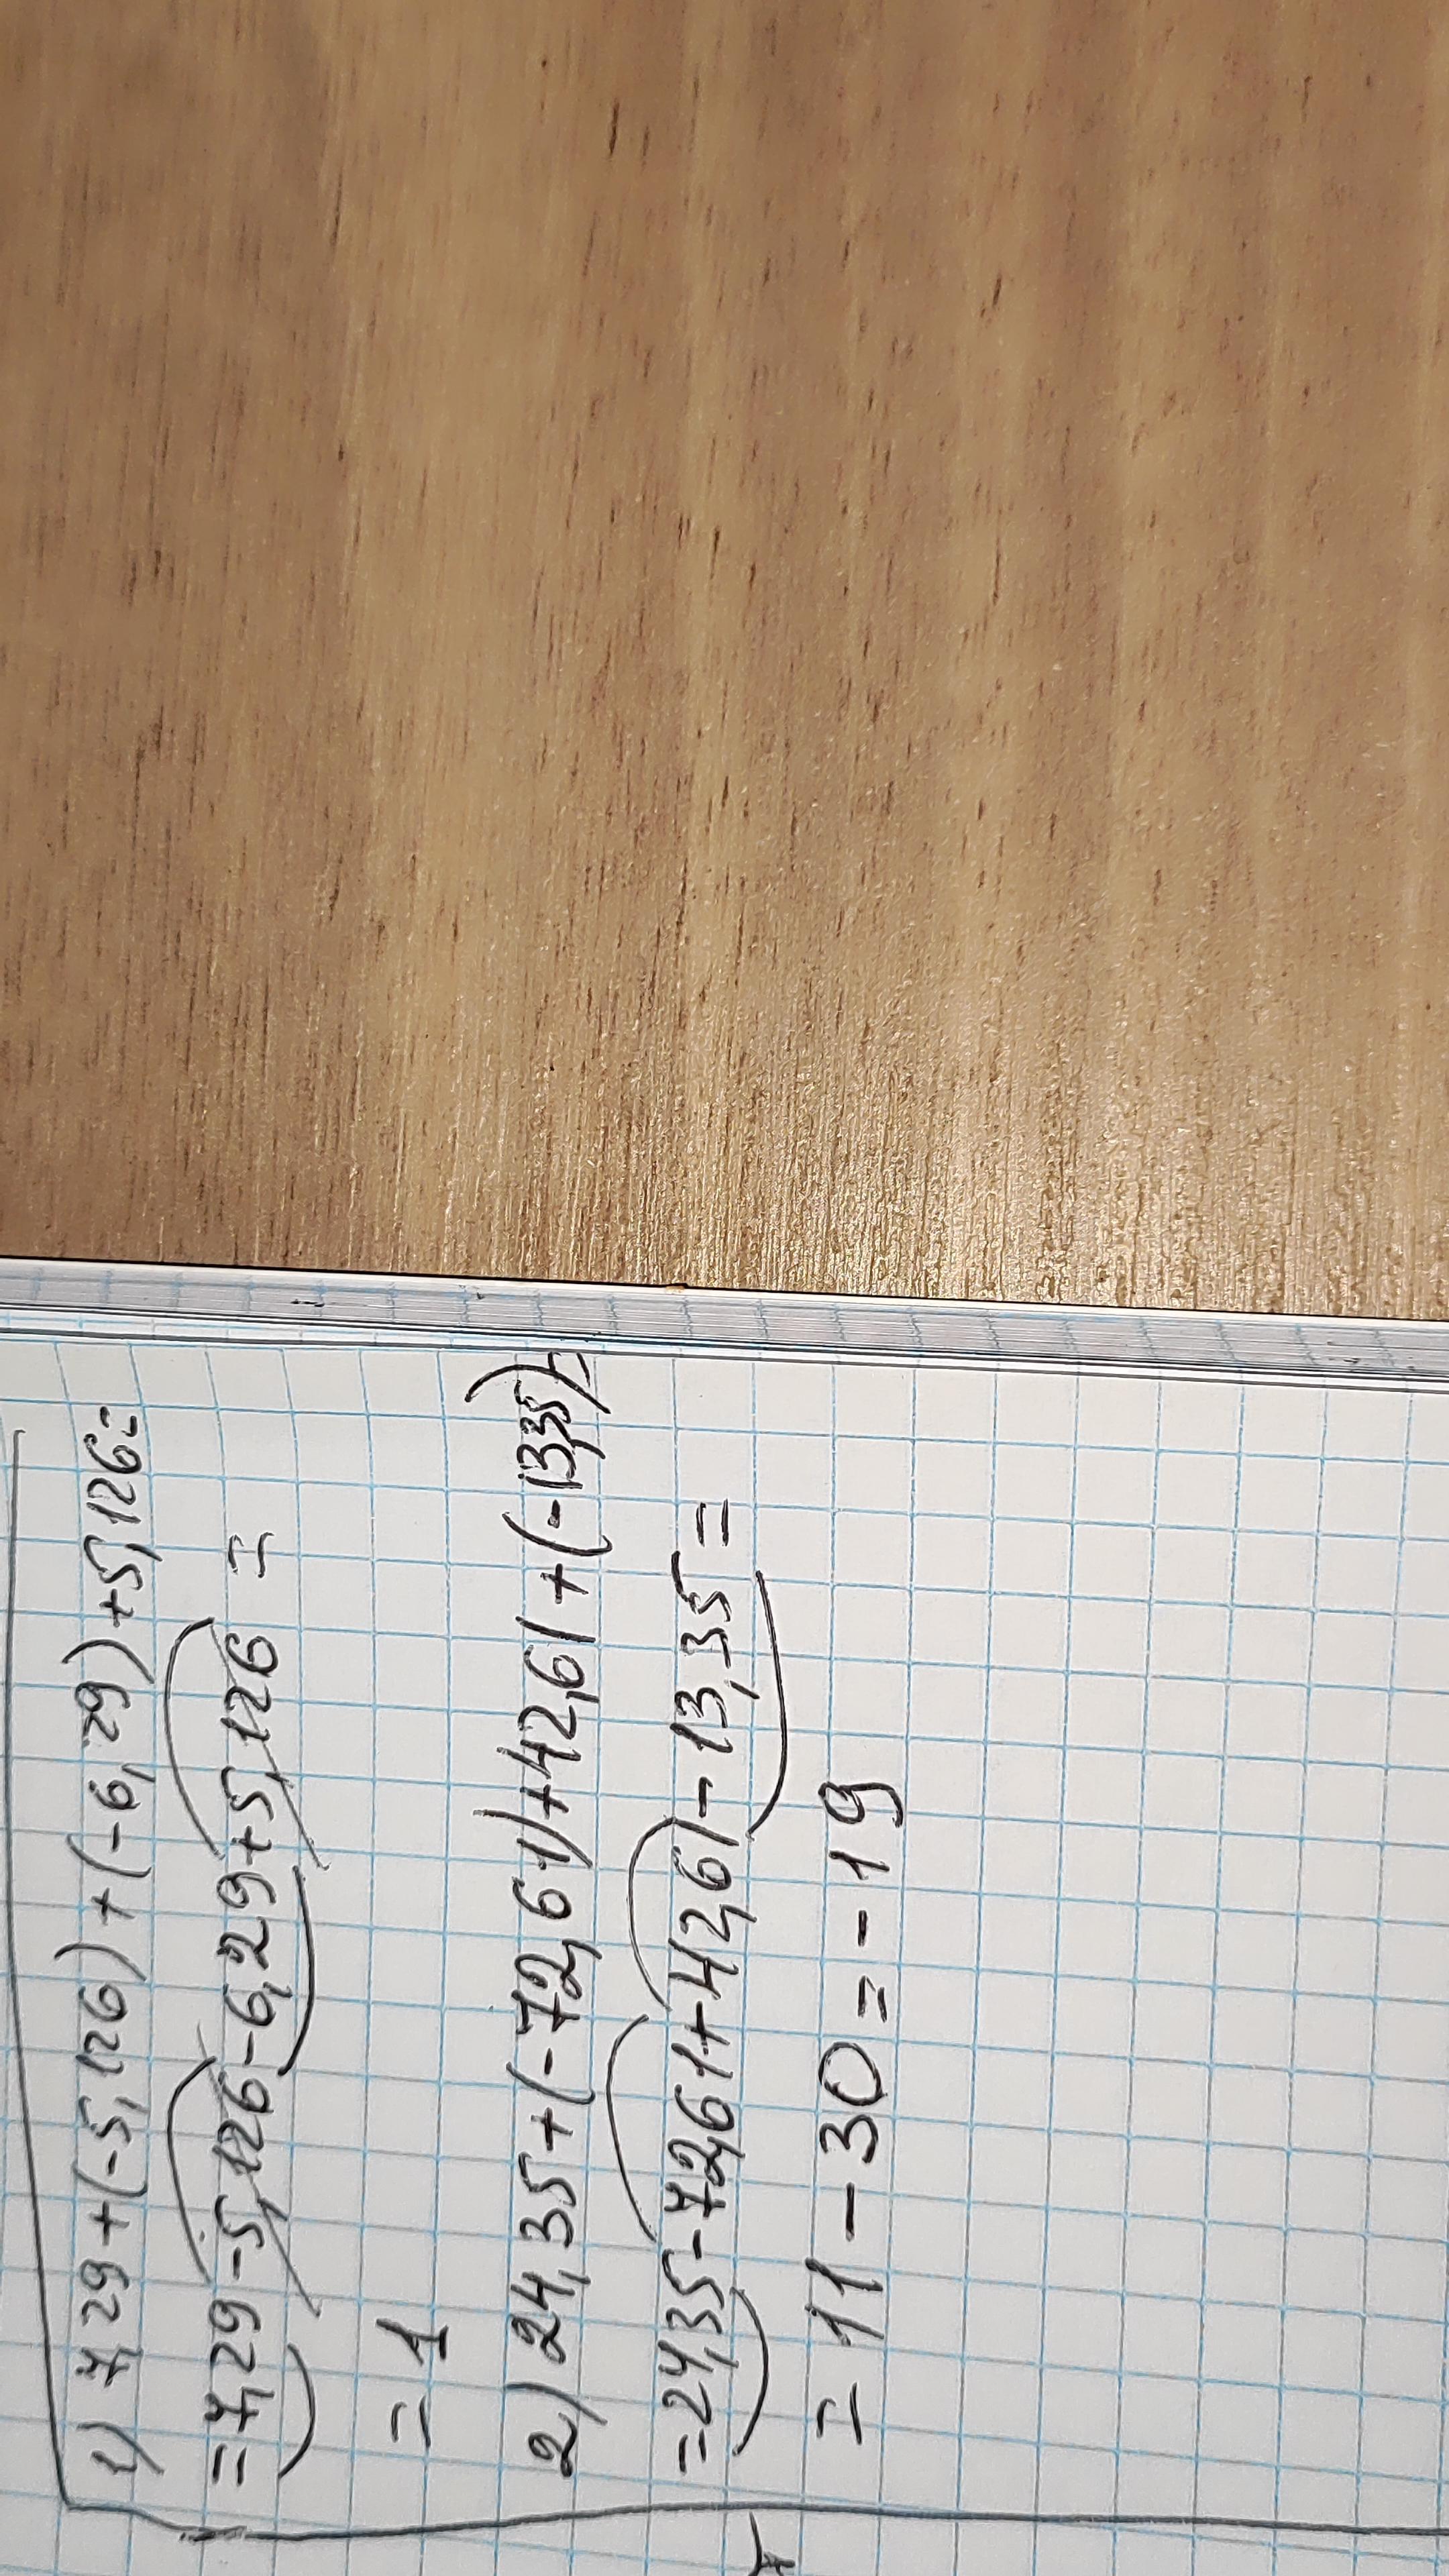 1) 7,29+(-5,126)+(-6,29)+5,126=
=7,29-5,126-6,29+5,126=
=1
2) 24,35+(-72,61)+42,61+(-13,35)=
=24,35-72,61+42,61-13,35=
=11-30=-19